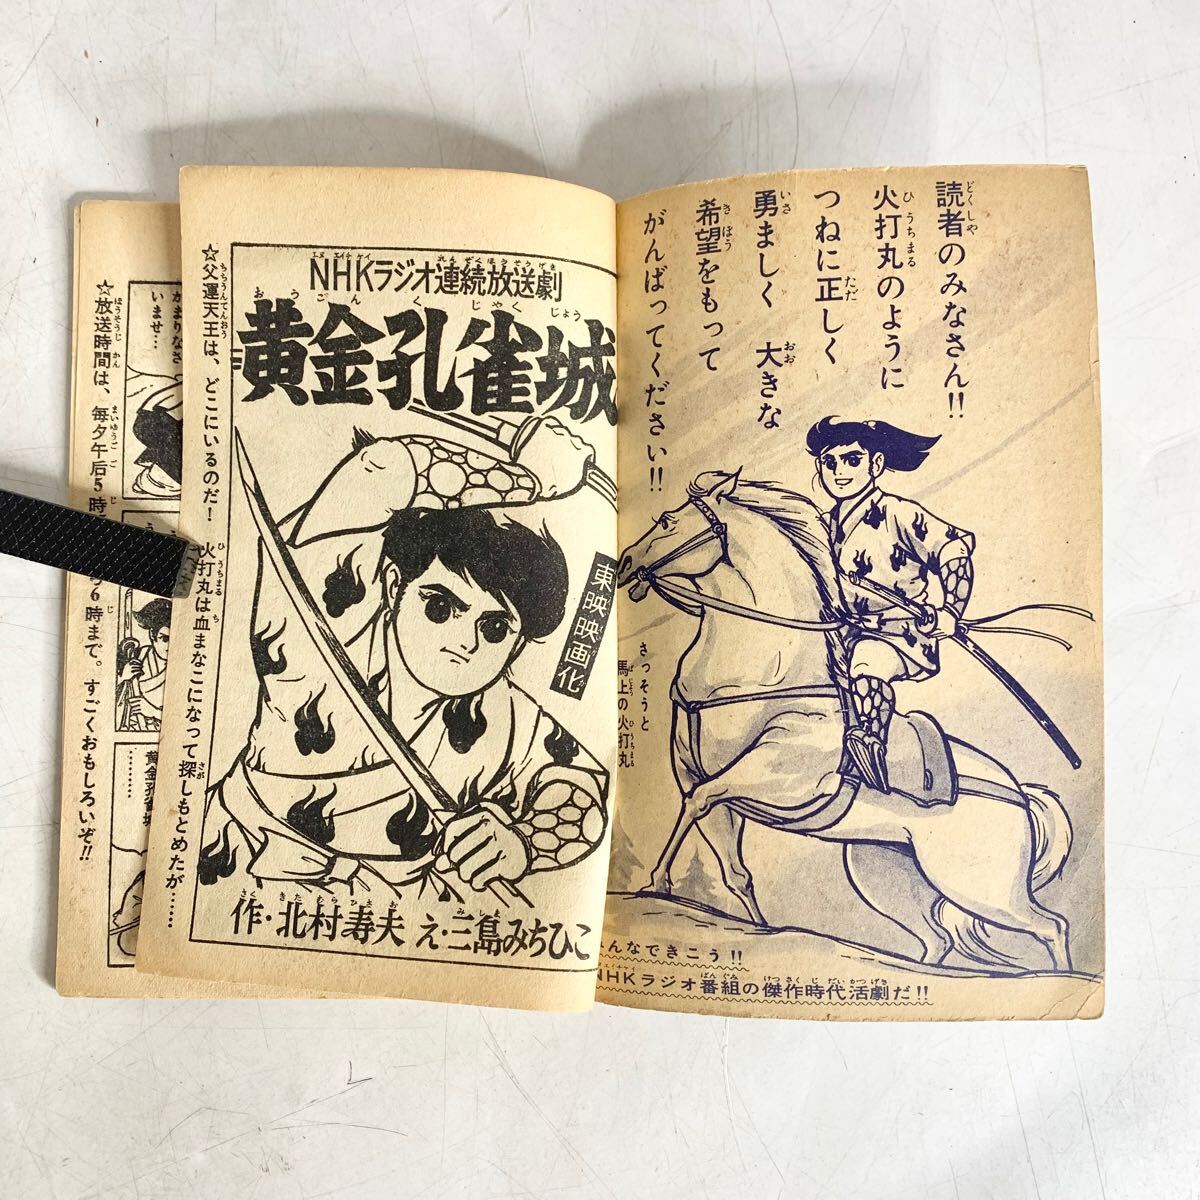 読者のみなさん!!
火打丸のように
つねに正しく
勇ましく 大きな
希望をもって
がんばってください!!
さっそうと
馬上の火打丸
んなできこう!!
NHKラジオ番組の傑作時代活劇だ!!
NHKラジオ連続放送劇
黄金孔雀城
東映映画化
作・北村寿夫 え・三島みちひこ
☆父運天王は、どこにいるのだ! 火打丸は血まなこになって探しもとめたが……
☆放送時間は、毎夕午后5時
6時まで。すごくおもしろいぞ!!
いませ…
黄金孔雀城